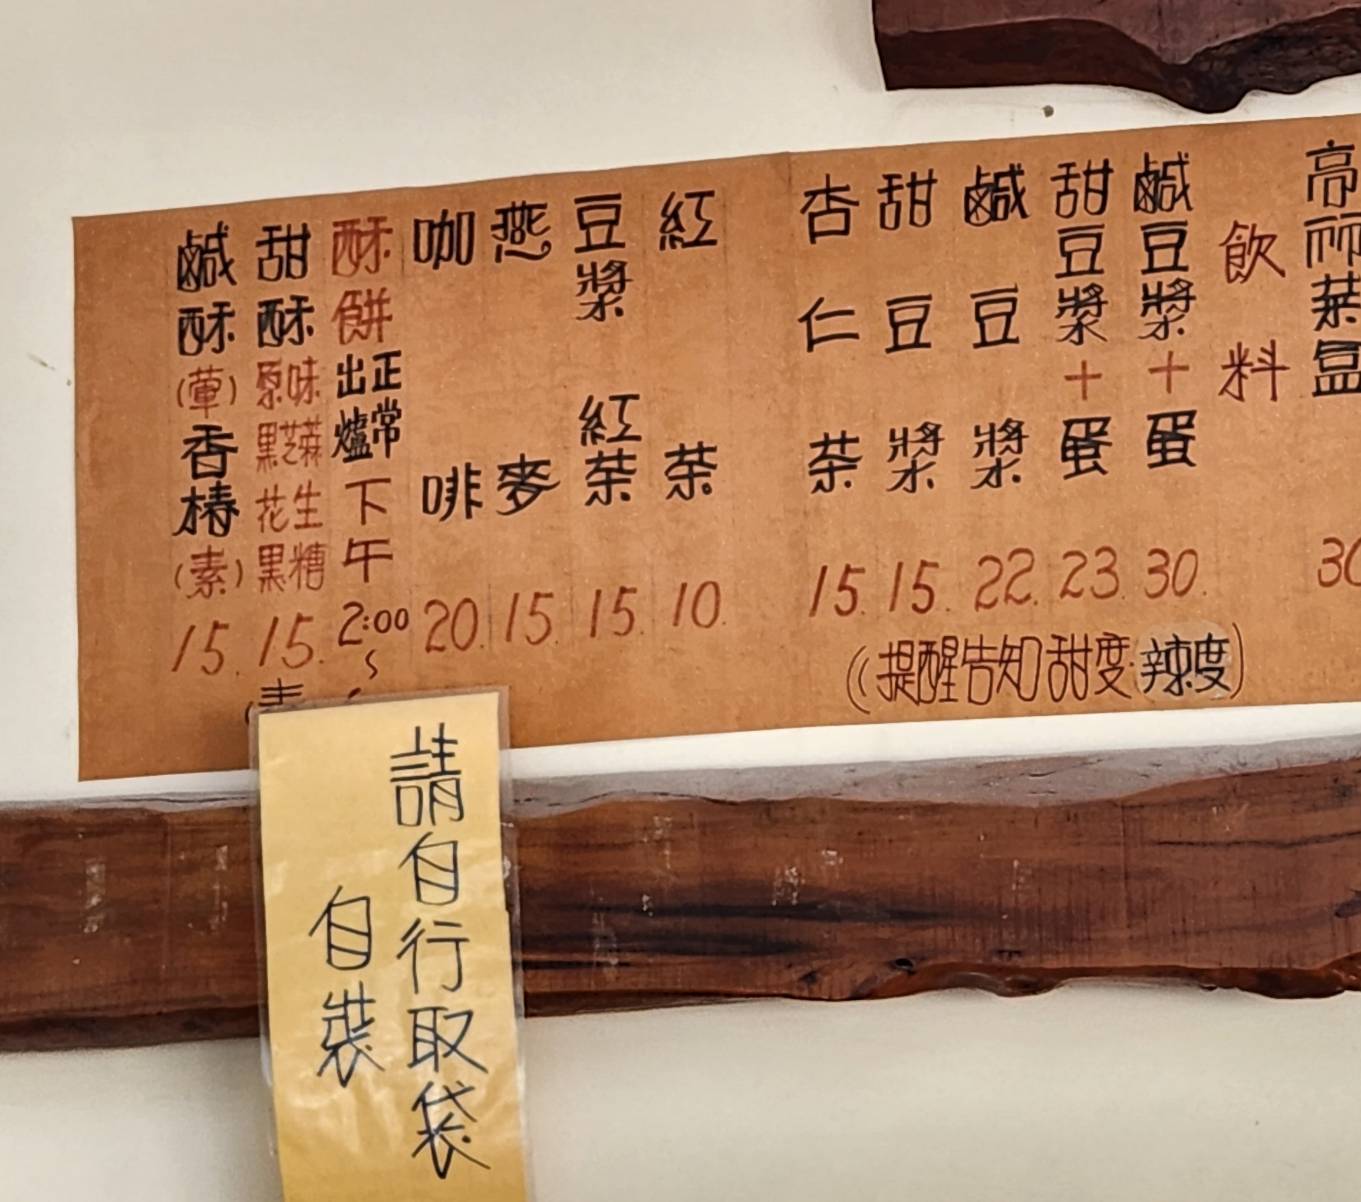 高麗菜盒 30
飲料
鹹豆漿+蛋 30.
甜豆漿+蛋 23.
鹹豆漿 22.
甜豆漿 15.
杏仁茶 15.
((提醒告知甜度.辣度)
紅茶 10.
豆漿紅茶 15.
燕麥 15.
咖啡 20.
酥餅
正常出爐
下午
2:00
~
甜酥
原味
黑芝蔴
花生
黑糖
15.
鹹酥
(葷)
香椿
(素)
15.
請自行取袋
自裝